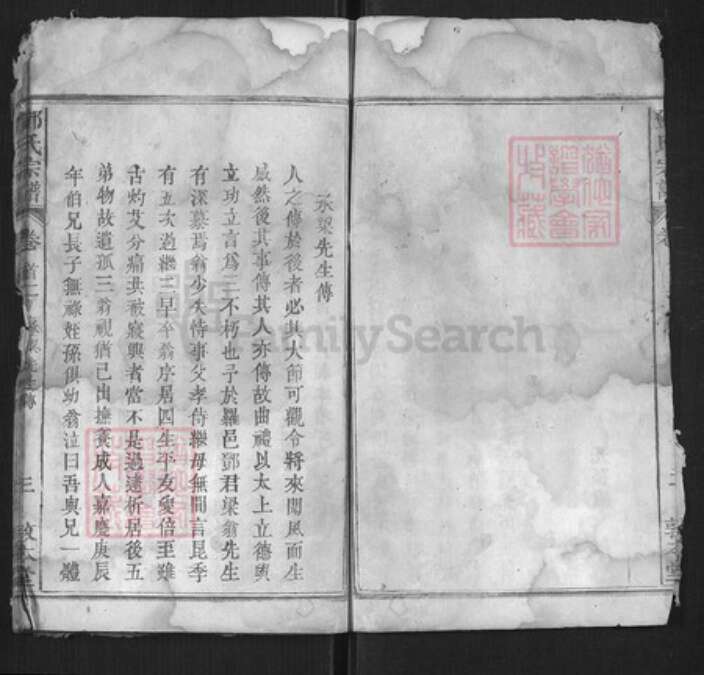 承梁先生傳
人之傳於後者必其大節可觀令將來聞風而生
感然後其事傳其人亦傳故曲禮以太上立德與
立功立言爲三不朽也予於羅邑鄧君梁翁先生
有深慕焉翁少失恃事父孝侍繼母無間言昆季
有五次過繼三早卒翁序居四生平友愛倍至雖
古灼艾分痛共被寢興者當不是過逮析居後五
弟物故遺孤三翁視猶己出撫養成人嘉慶庚辰
年伯兄長子無祿姪孫俱幼翁泣曰吾與兄一體
氏宗譜 卷首二 承梁先生傳 三 敦本堂
FamilySearch